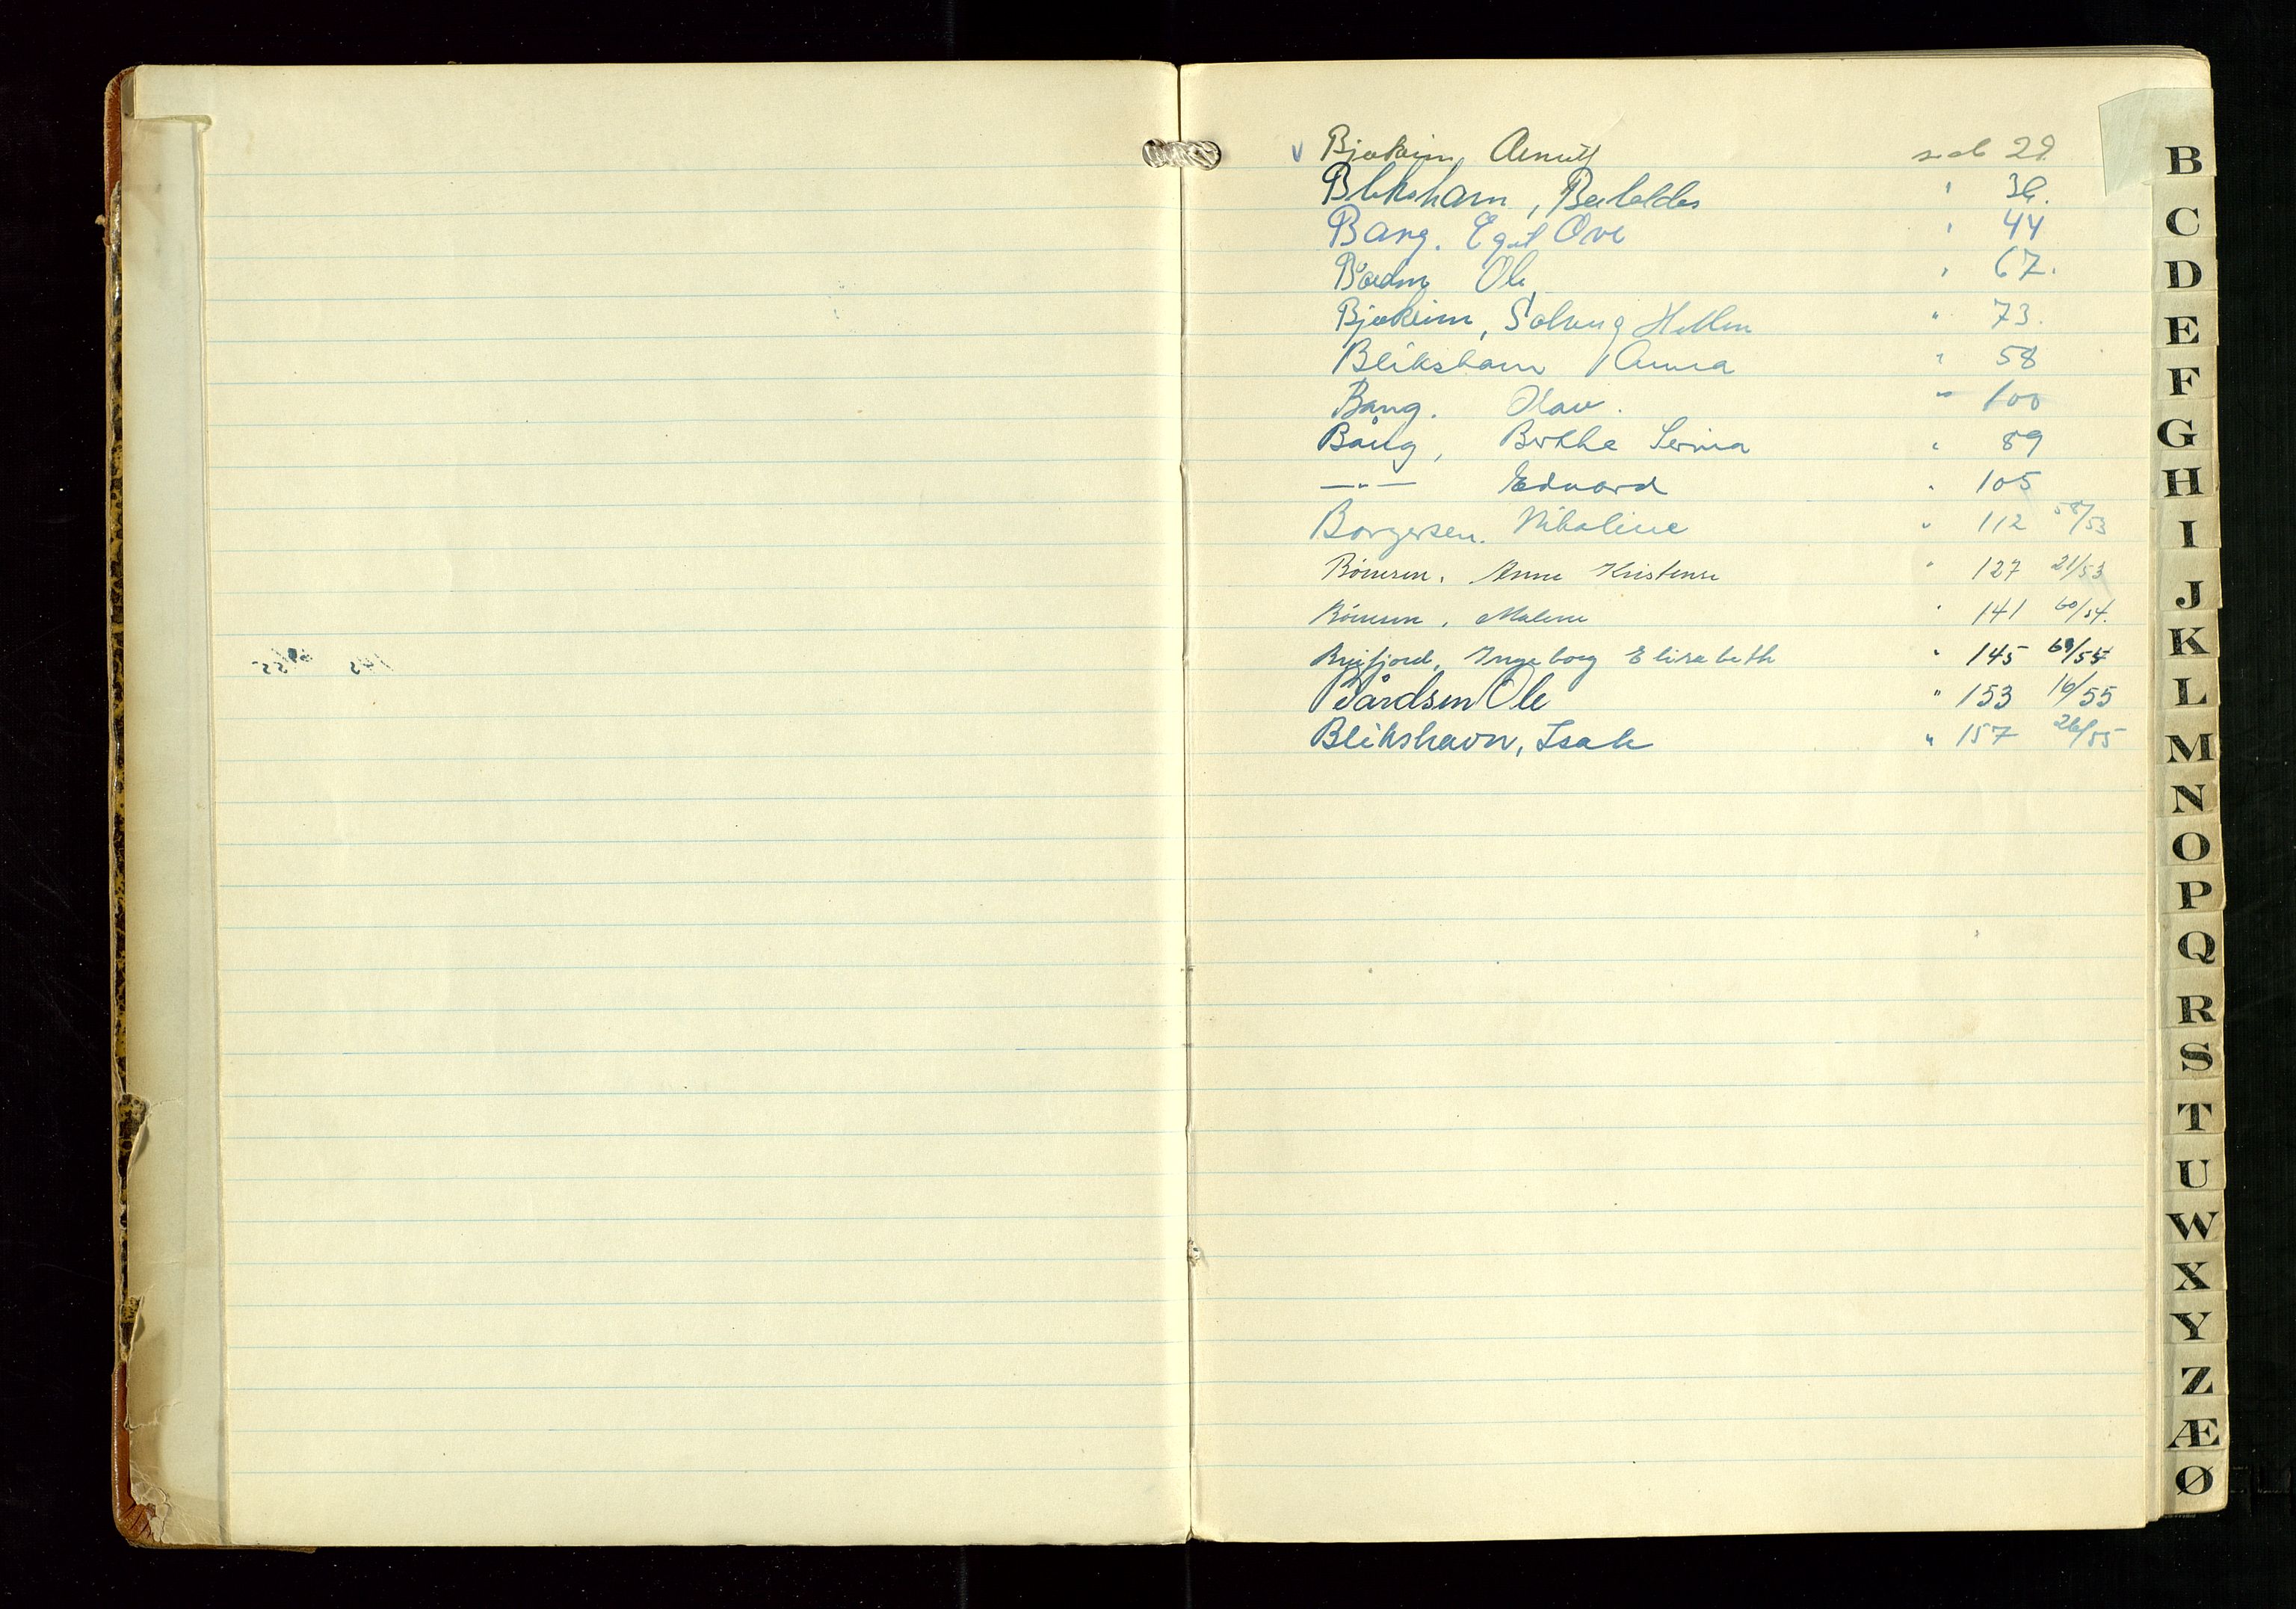 V Bjerkeim, Arnulf side 28.
Blikshavn, " 36.
Bang. Egil Ove " 44
Ole " 67.
Bjerkeim, Solveig Hellen " 73.
Blikshavn, Anna " 58
Bang. Olav. " 100
Bang, Berthe Serina " 89
— " — Edvard " 105
Borgersen. Nikoline " 112 58/53
Børresen. Anne Kristense " 127 21/53
Børresen. Malene " 141 60/54.
Ingeborg Elisabeth " 145 69/55
Bårdsen Ole " 153 16/55
Blikshavn, Isak " 157 26/55
B
C
D
E
F
G
H
I
J
K
L
M
N
O
P
Q
R
S
T
U
W
X
Y
Z
Æ
Ø